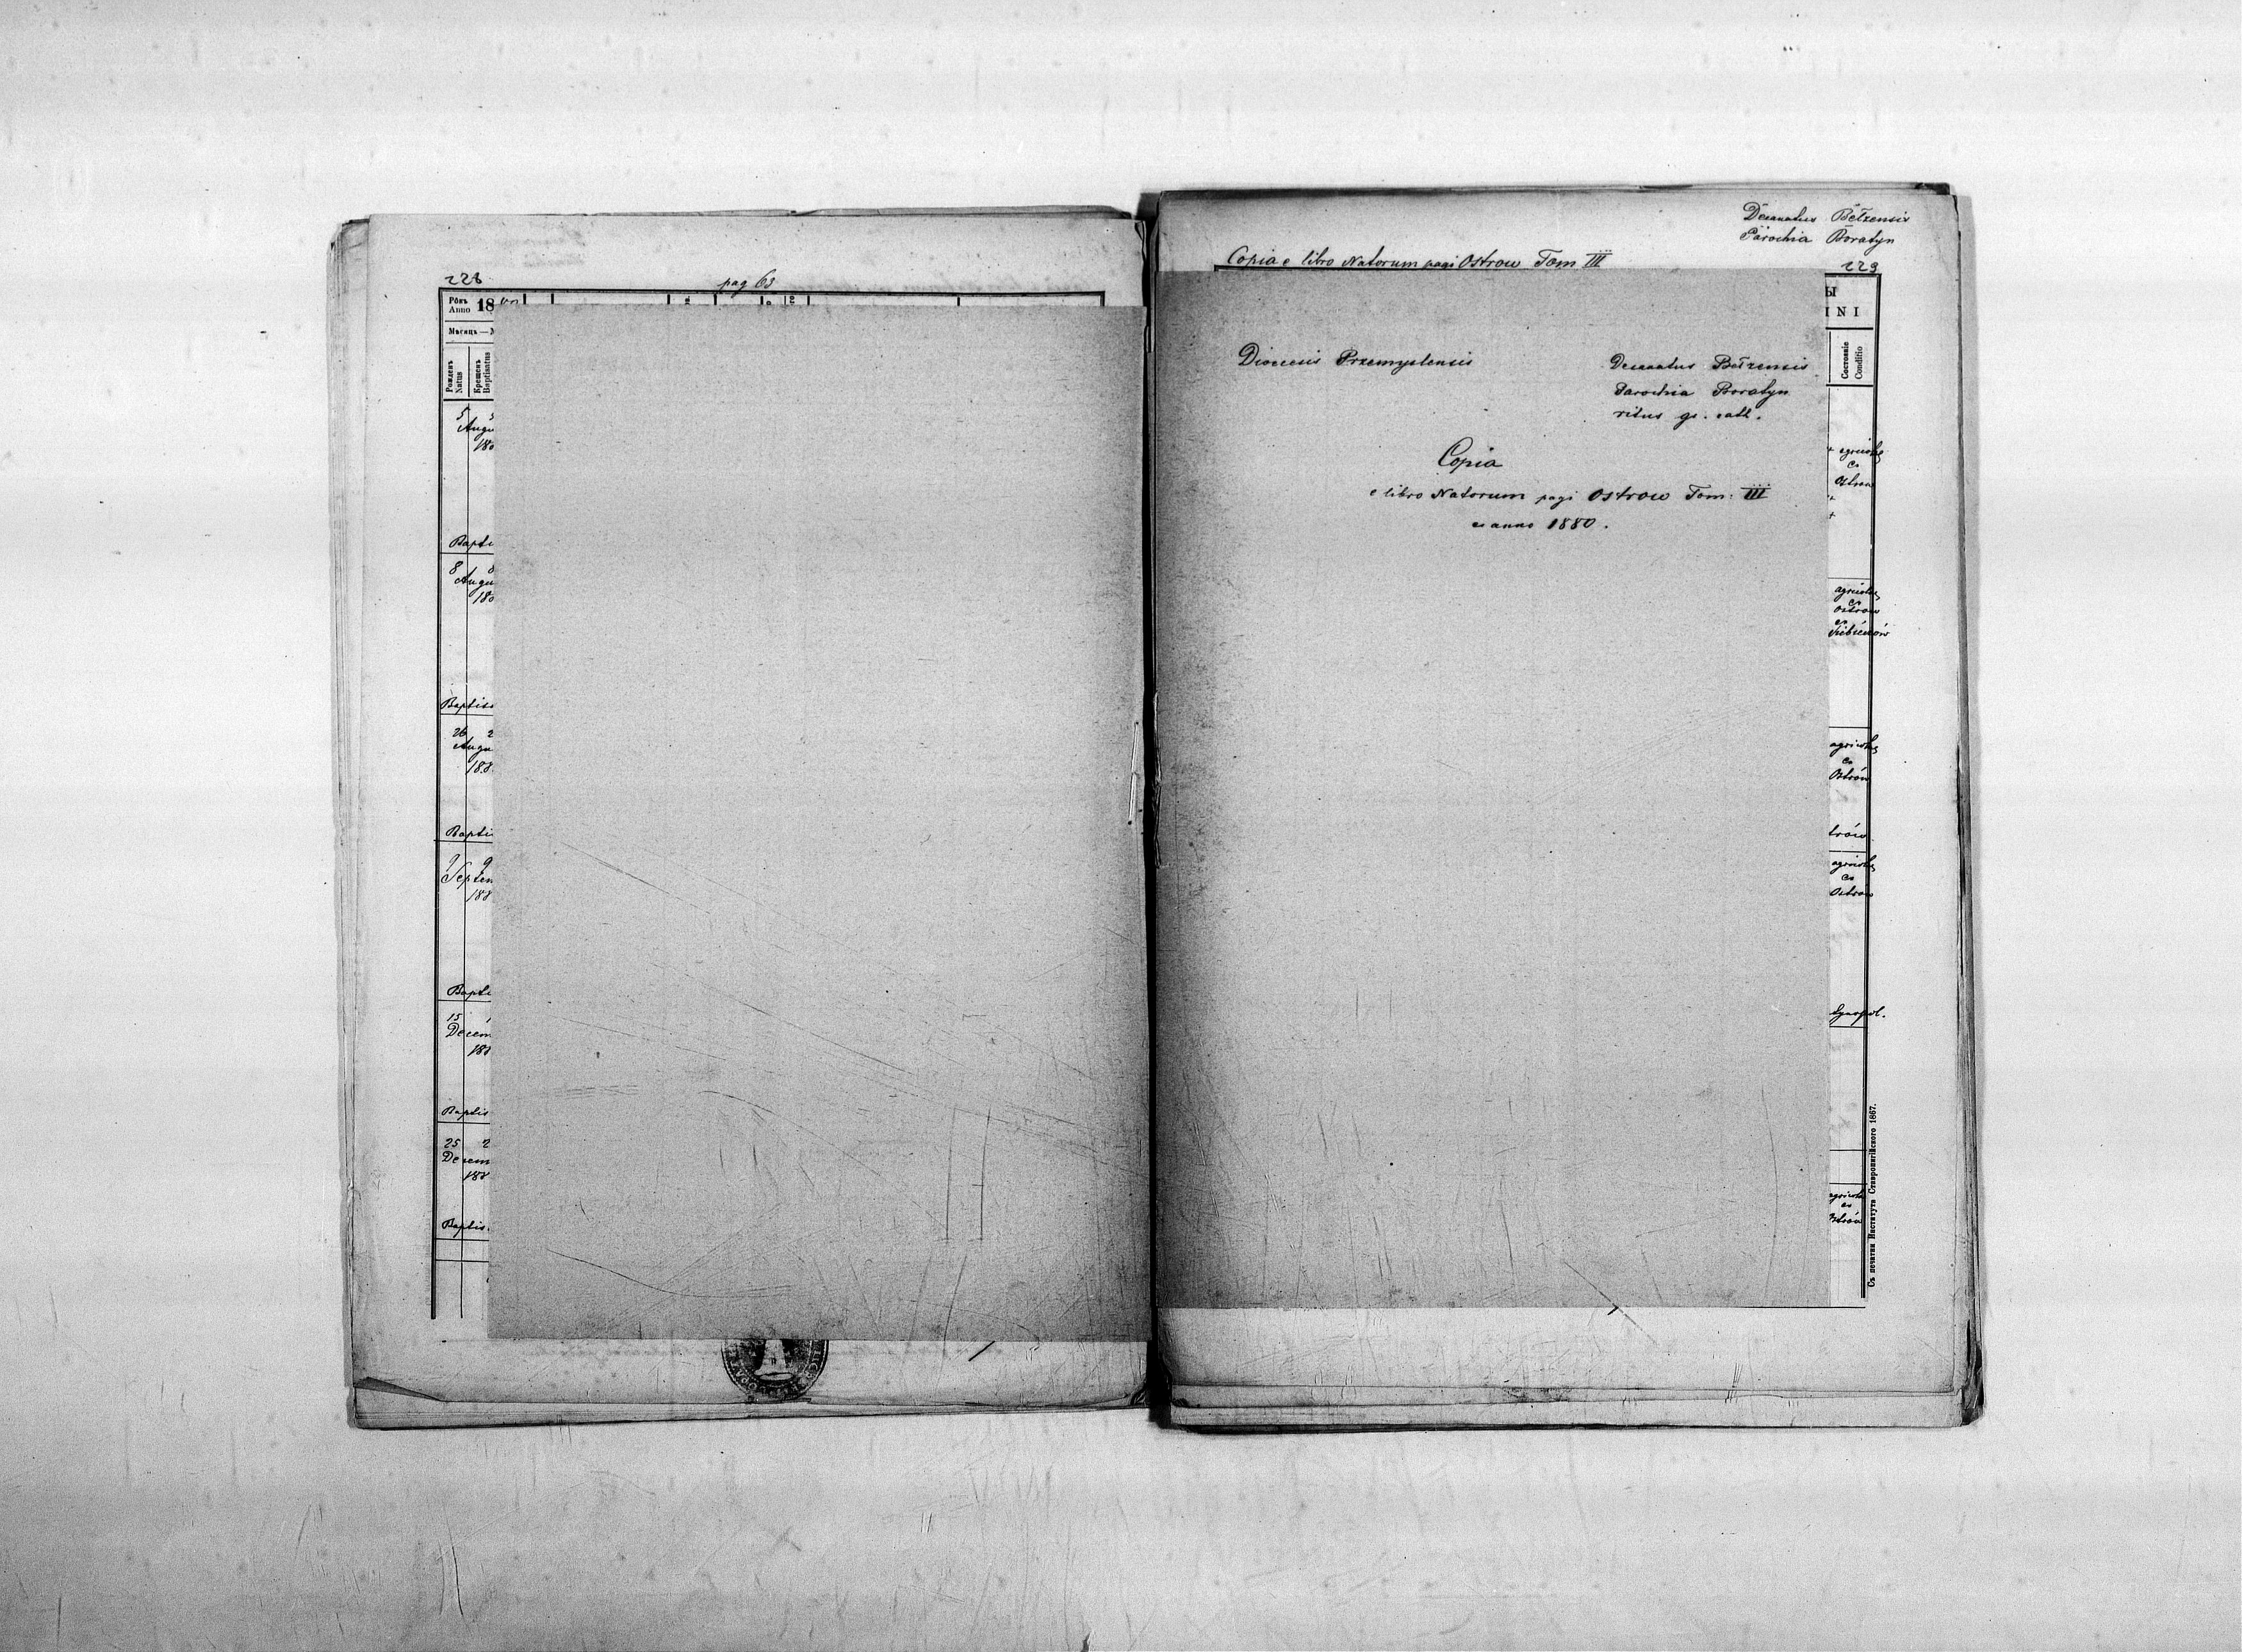 228
pag 63
Рôкъ
Anno 18
Мѣсяць —
Рожденъ
Natus
Крещенъ
Baptisatus
5
Augu
188
Bapti
8 8
Augu
188
Baptis
26 2
Augu
188
Bapti
9 9
Septem
188
Bapti
15 1
Decem
188
Baptis
25 2
Decem
188
Baptis
Decanatus Bełzensis
Parochia Boratyn
Copia e libro Natorum pagi Ostrow Tom III
229
Ы
INI
Состоянiе
Conditio
Dioecesis Przemyslensis
Decanatus Bełzensis
Parochia Boratyn
ritus gr. cath.
Copia
e libro Natorum pagi Ostrow Tom: III
ex anno 1880.
agricola
ex
Ostrow
agricola
ex
Ostrow
ex
agricola
ex
Ostrów
trów
agricola
ex
Ostrów
agricola
ex
Ostrów
Съ печатни Института Ставропигiйского 1867.